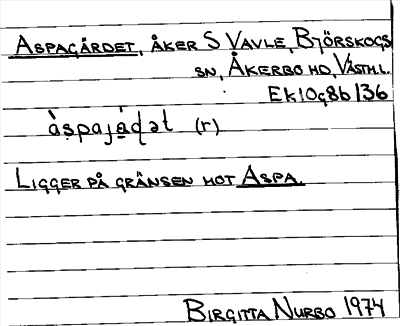 ASPAGÄRDET, ÅKER S VAVLE, BJÖRSKOGS
SN, ÅKERBO HD, VÄSTML.
EK 10g8b/36
àspajä̀ḍət (r)
LIGGER PÅ GRÄNSEN MOT ASPA.
BIRGITTA NURBO 1974